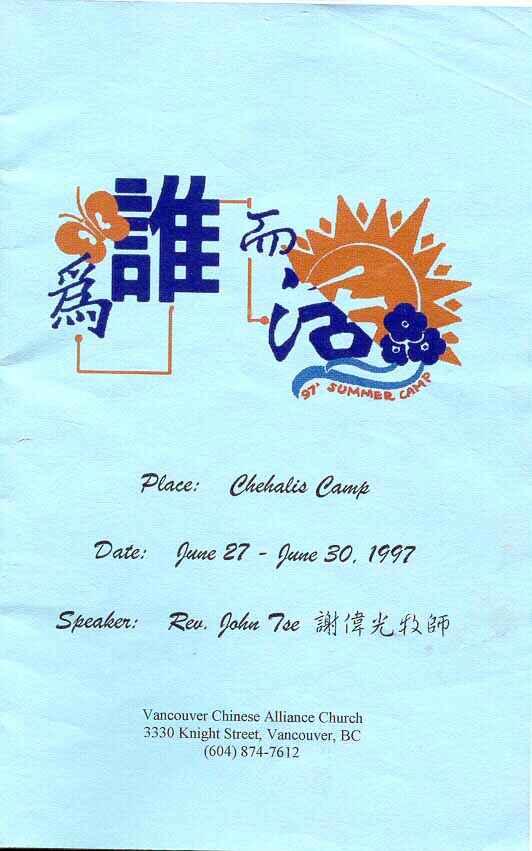 為誰而活
97' SUMMER CAMP
Place: Chehalis Camp
Date: June 27 - June 30, 1997
Speaker: Rev. John Tse 謝偉光牧師
Vancouver Chinese Alliance Church
3330 Knight Street, Vancouver, BC
(604) 874-7612